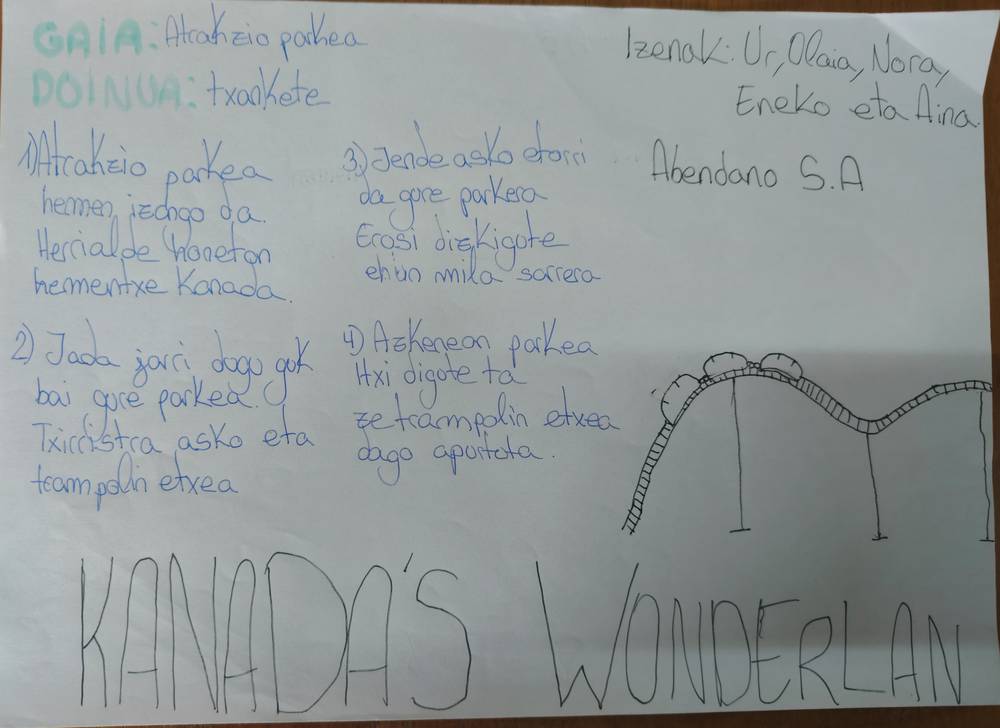 GAIA: Atrakzio parkea
DOINUA: txankete
Izenak: Ur, Olaia, Nora,
Eneko eta Aina.
Abendano S.A
1) Atrakzio parkea
hemen izango da.
Herrialde honetan
hementxe Kanada.
2) Jada jarri dogu guk
bai gure parkea.
Txirristra asko eta
trampolin etxea
3) Jende asko etorri
da gure parkera
Erosi dizkigote
ehun mila sarrera
4) Azkenean parkea
Itxi digote ta
ze trampolin etxea
dago apurtuta.
KANADA'S WONDERLAN